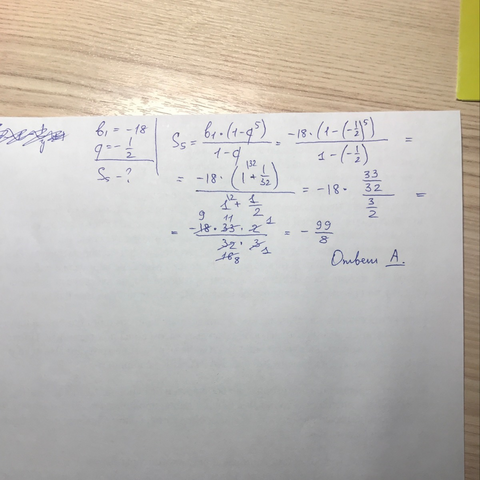 b₁ = -18
q = -1/2
S₅ - ?
S₅ = b₁·(1-q⁵)/(1-q) = -18·(1-(-1/2)⁵)/(1-(-1/2)) =
= -18·(1\³² + 1/32)/(1\² + 1/2) = -18 · (33/32)/(3/2) =
= -18·33·2/(32·3) = -99/8
Ответ А.